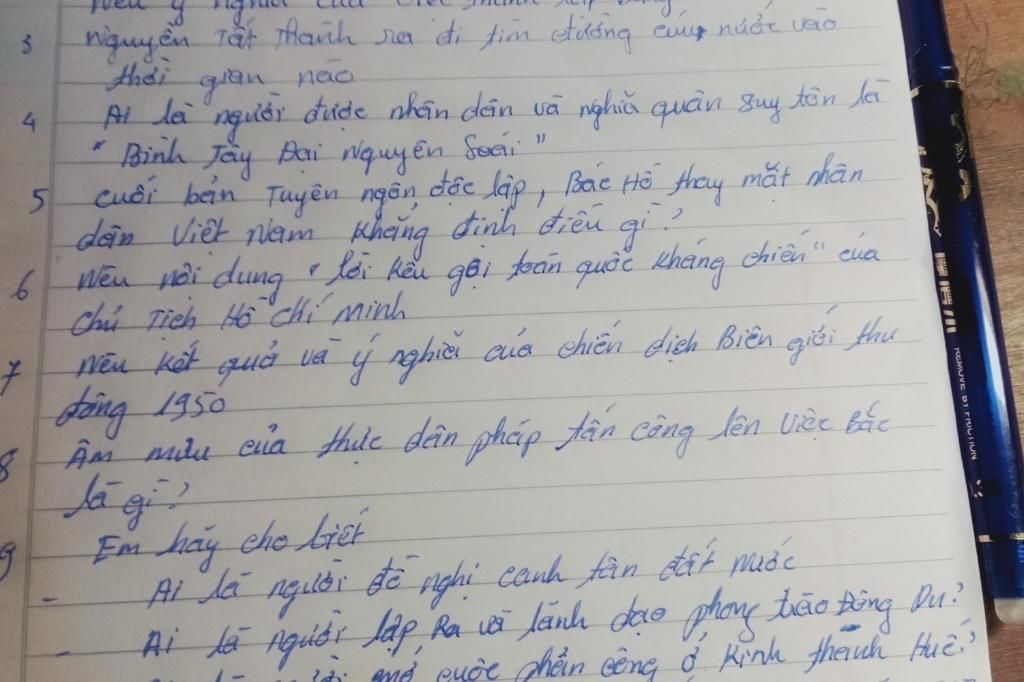 Nêu ý nghĩa của Việt
3 Nguyễn Tất Thành ra đi tìm đường cứu nước vào
thời gian nào
4 Ai là người được nhân dân và nghĩa quân suy tôn là
" Bình Tây Đại Nguyên Soái "
5 Cuối bản Tuyên ngôn độc lập, Bác Hồ thay mặt nhân
dân Việt Nam khẳng định điều gì?
6 Nêu nội dung " lời kêu gọi toàn quốc kháng chiến" của
chủ tịch Hồ Chí Minh
7 Nêu kết quả và ý nghĩa của chiến dịch Biên giới thu
đông 1950
8 Âm mưu của thực dân pháp tấn công lên Việc Bắc
là gì?
9 Em hãy cho biết
- Ai là người đề nghị canh tân đất nước
- Ai là người lập Ra và lãnh đạo phong trào Đông Du?
cuộc phản công ở Kinh thành Huế?
REMOVE BY FRICTION